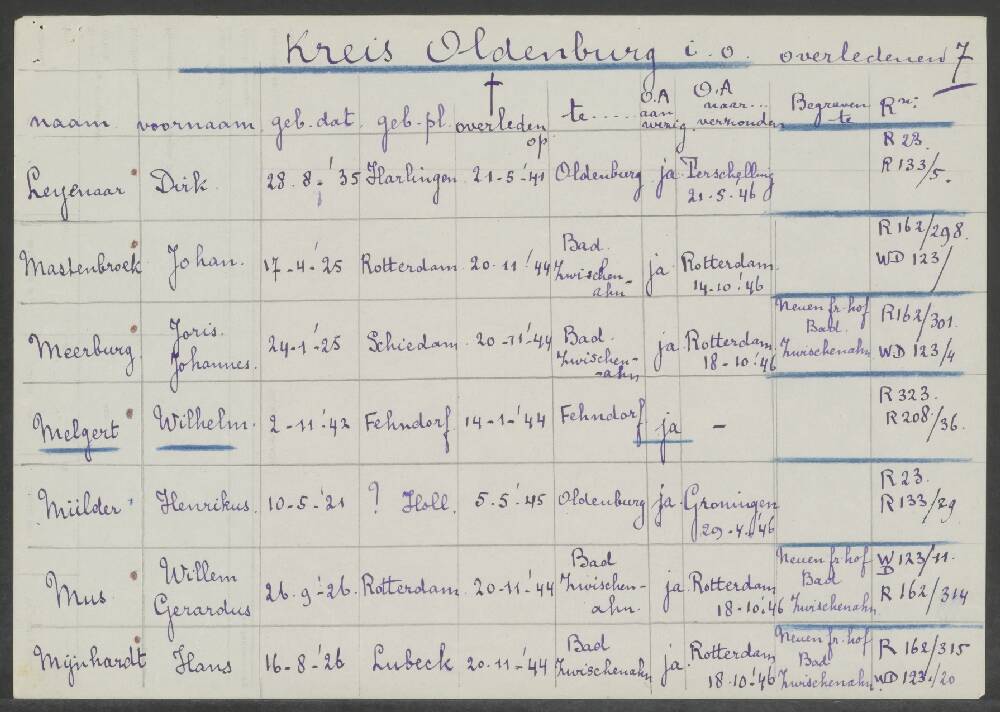 Kreis Oldenburg i.o. overledenen 7
naam voornaam geb.dat. geb.pl. overleden op te..... O.A aan wezig. O.A naar... verzonden Begraven te Rn:
Leyenaar Dirk. 28.8.'35 Harlingen. 21-5-'41 Oldenburg ja Terschelling 21.5.'46 R 23. R133/5.
Mastenbroek Johan. 17-4-'25 Rotterdam. 20-11-'44 Bad. Zwischen-ahn- ja Rotterdam. 14-10-'46 R162/298. WD 123/
Meerburg Joris. Johannes. 24-1-'25 Schiedam. 20-11-'44 Bad. Zwischen-ahn ja. Rotterdam. 18-10-'46 Neuen fr.hof Bad. Zwischenahn R162/301. WD 123/4
Melgert Wilhelm. 2-11-'42 Fehndorf 14-1-'44 Fehndorf ja - R 323. R208/36.
Mülder Henrikus. 10-5-'21 ? Holl. 5-5-'45 Oldenburg ja. Groningen 29-4-'46 R 23. R133/29
Mus Willem Gerardus 26.9-'26. Rotterdam. 20-11-'44 Bad Zwischen-ahn. ja Rotterdam 18-10-'46 Neuen fr.hof Bad Zwischenahn WD 123/11. R162/314
Mijnhardt Hans 16-8-'26 Lubeck 20-11-'44 Bad Zwischenahn ja. Rotterdam 18.10-'46 Neuen fr.hof Bad Zwischenahn. R 162/315 WD 123/20